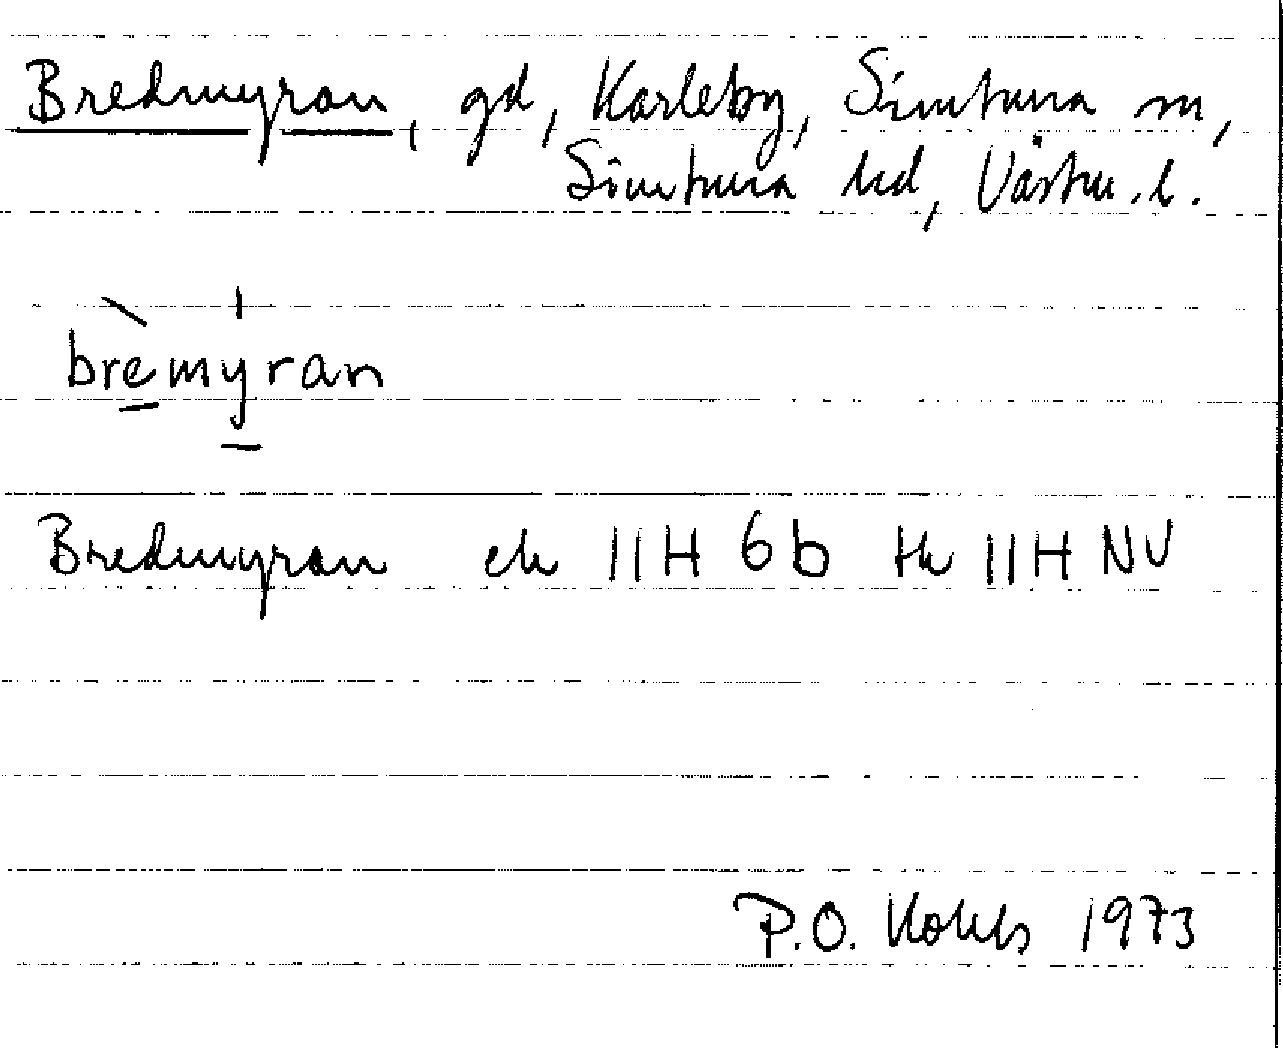 Bredmyran, gd, Karleby, Simtuna sn,
Simtuna hd, Västm. l.
bremyran
Bredmyran ek 11H 6b tk 11H NV
P.O. 1973